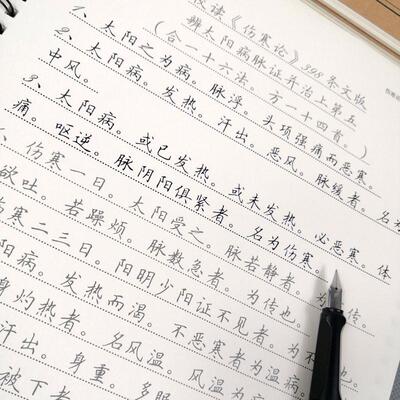 读《伤寒论》398条文版
辨太阳病脉证并治上第五
(合一十六法。方一十四首。)
1、太阳之为病。脉浮。头项强痛而恶寒。
2、太阳病。发热。汗出。恶风。脉缓者。名为
中风。
3、太阳病。或已发热。或未发热。必恶寒。体
痛。呕逆。脉阴阳俱紧者。名为伤寒。
、伤寒一日。太阳受之。脉若静者。为传。
欲吐。若躁烦。脉数急者。为传也。
伤寒二三日。阳明少阳证不见者。为不
阳病。发热而渴。不恶寒者为温病。
身灼热者。名风温。风温为
汗出。身重。多眠
被下者